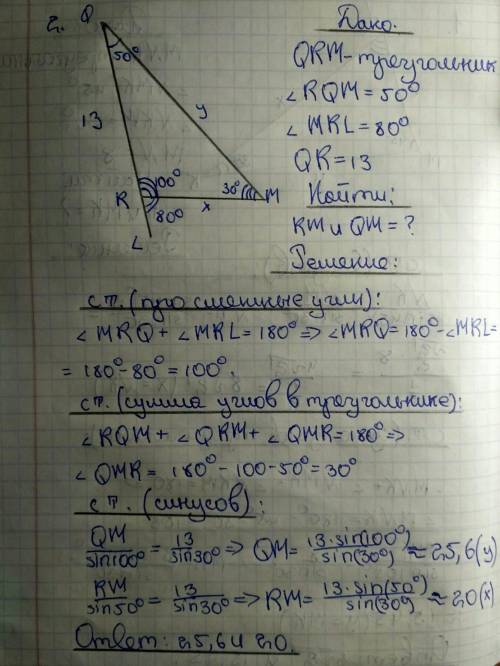 2.
Q
50°
13
y
R
100°
80°
x
30°
M
L
Дано:
QRM-треугольник
∠RQM=50°
∠MRL=80°
QR=13
Найти:
RM и QM=?
Решение:
с т. (про смежные углы):
∠MRQ + ∠MRL=180°=> ∠MRQ=180°-∠MRL=
=180°-80°=100°.
с т. (сумма углов в треугольнике):
∠RQM+ ∠QRM+ ∠QMR=180°=>
∠QMR= 180°-100-50°=30°
с т. (синусов):
QM/sin100° = 13/sin30° => QM= 13·sin(100°)/sin(30°) ≈25,6(y)
RM/sin50° = 13/sin30° => RM= 13·sin(50°)/sin(30°) ≈20(x)
Ответ: 25,6 и 20.